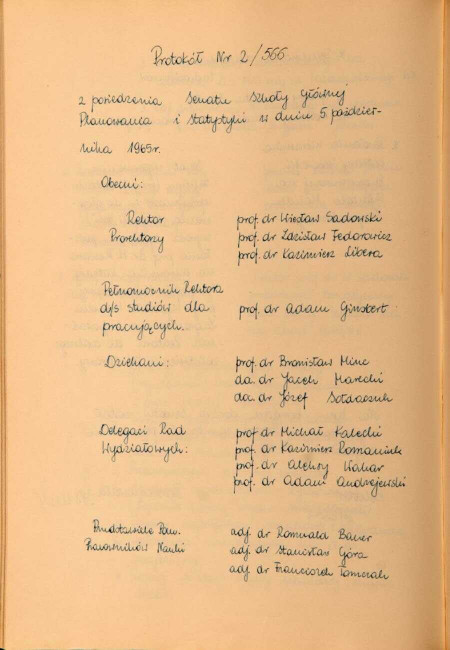 Protokół Nr 2/566
z posiedzenia Senatu Szkoły Głównej
Planowania i Statystyki w dniu 5 paździer-
nika 1965r.
Obecni:
Rektor prof. dr Wiesław Sadowski
Prorektorzy prof. dr Zdzisław Fedorowicz
prof. dr Kazimierz Libera
Pełnomocnik Rektora
d/s studiów dla prof. dr Adam Ginsbert
pracujących.
Dziekani: prof. dr Bronisław Minc
doc. dr Jacek Marecki
doc. dr Józef Sołdaczuk
Delegaci Rad prof. dr Michał Kalecki
Wydziałowych: prof. dr Kazimierz Romaniuk
prof. dr Aleksy Wakar
prof. dr Adam Andrzejewski
Pracowników Nauki adj. dr Romuald Bauer
adj. dr Stanisław Góra
adj. dr Franciszek Tomczak